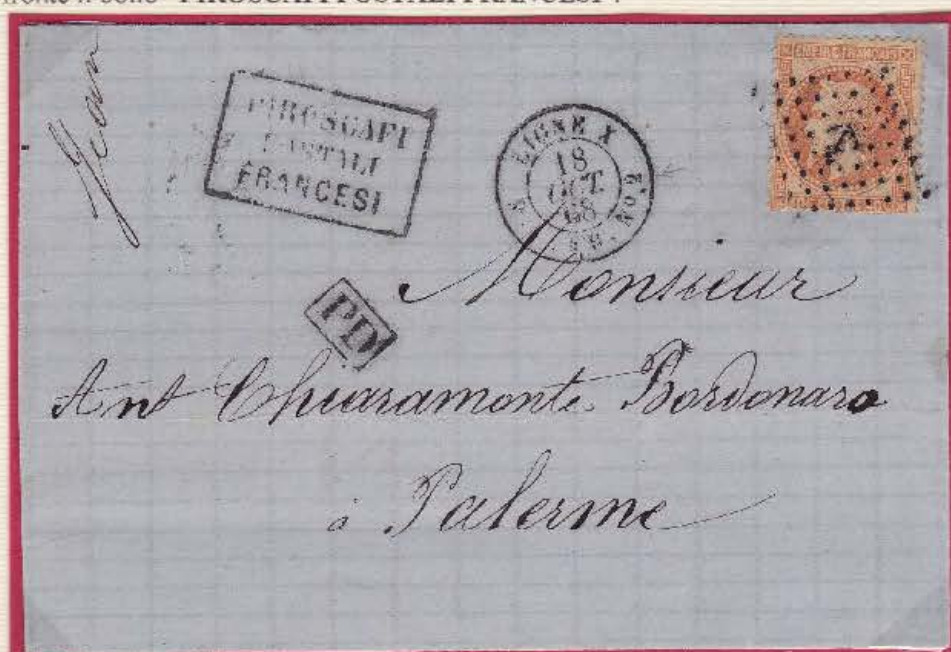 "PIROSCAFI POSTALI FRANCESI".
Jean
PIROSCAFI
POSTALI
FRANCESI
LIGNE X
18
OCT.
68
PAQ. FR. No. 2
EMPIRE FRANÇAIS
PD
Monsieur
Ant Chiaramonte Bordonaro
à Palerme